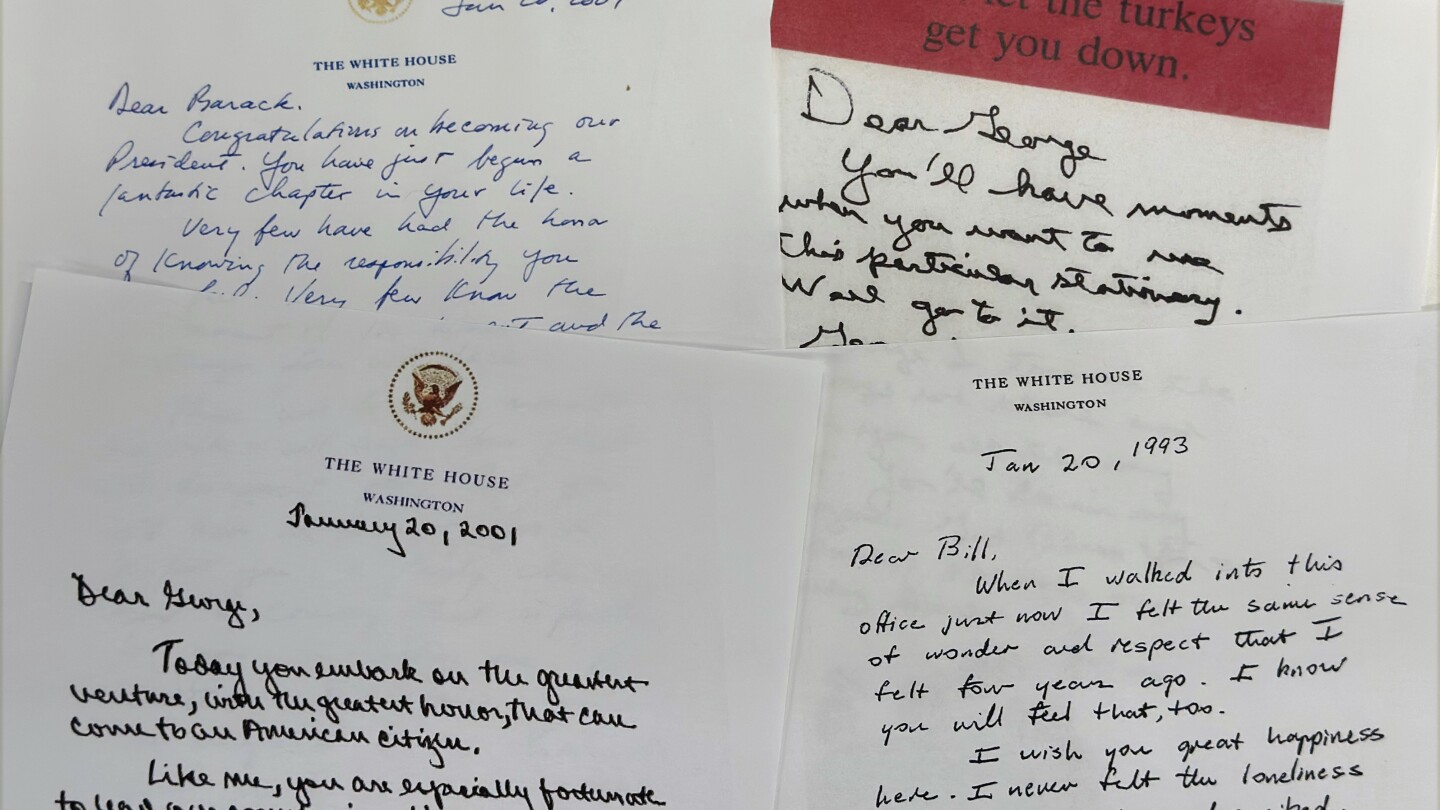 Jan 20, 2001
THE WHITE HOUSE
WASHINGTON
Dear Barack.
Congratulations on becoming our
President. You have just begun a
fantastic chapter in your life.
Very few have had the honor
of knowing the responsibility you
Very few know the
and the
let the turkeys
get you down.
Dear George
You'll have moments
when you want to use
this particular stationary.
Well go to it.
THE WHITE HOUSE
WASHINGTON
January 20, 2001
Dear George,
Today you embark on the greatest
venture, with the greatest honor, that can
come to an American citizen.
Like me, you are especially fortunate
to lead our
THE WHITE HOUSE
WASHINGTON
Jan 20, 1993
Dear Bill,
When I walked into this
office just now I felt the same sense
of wonder and respect that I
felt four years ago. I know
you will feel that, too.
I wish you great happiness
here. I never felt the loneliness